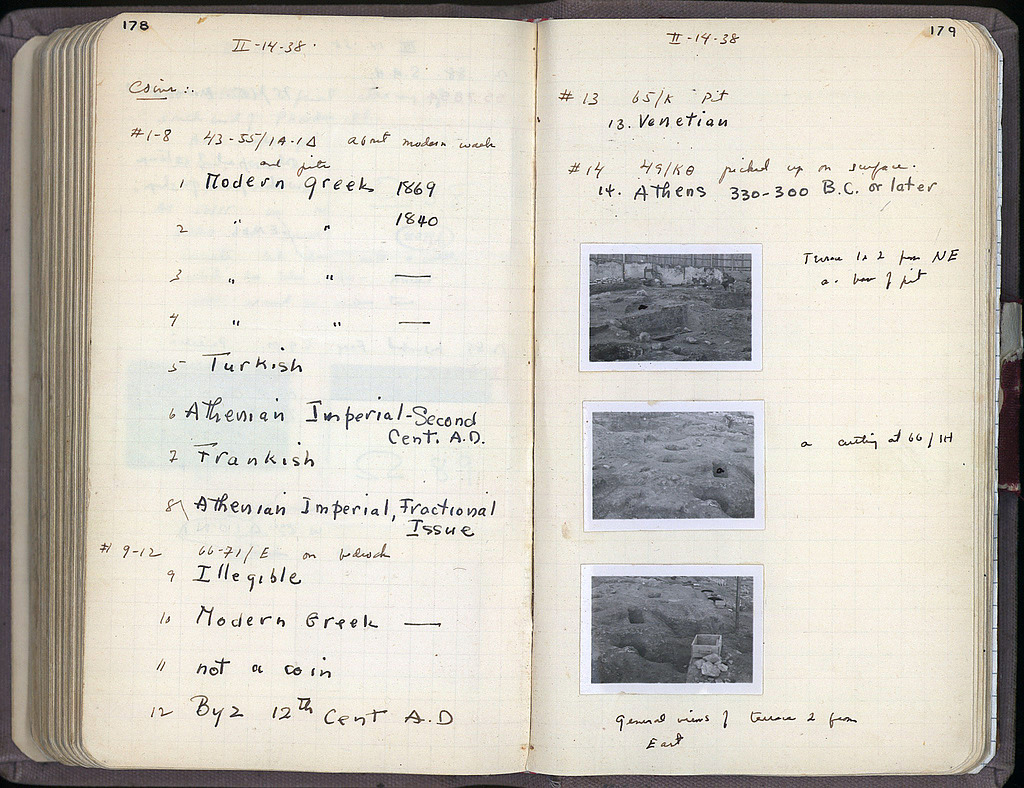 178
II-14-38.
Coins:.
#1-8 43-55/1A-1Δ about modern walls
and pits
1 Modern Greek 1869
2 " " 1840
3 " " —
4 " " —
5 Turkish
6 Athenian Imperial-Second
Cent. A.D.
7 Frankish
8 Athenian Imperial, Fractional
Issue
#9-12 66-71/E on bedrock
9 Illegible
10 Modern Greek —
11 not a coin
12 Byz 12th Cent A.D
179
II-14-38
#13 65/K Pit
13. Venetian
#14 49/KΘ picked up on surface.
14. Athens 330-300 B.C. or later
Terrace 1 & 2 from NE
a. base of pit
a cutting at 66/1H
General views of terrace 2 from
East